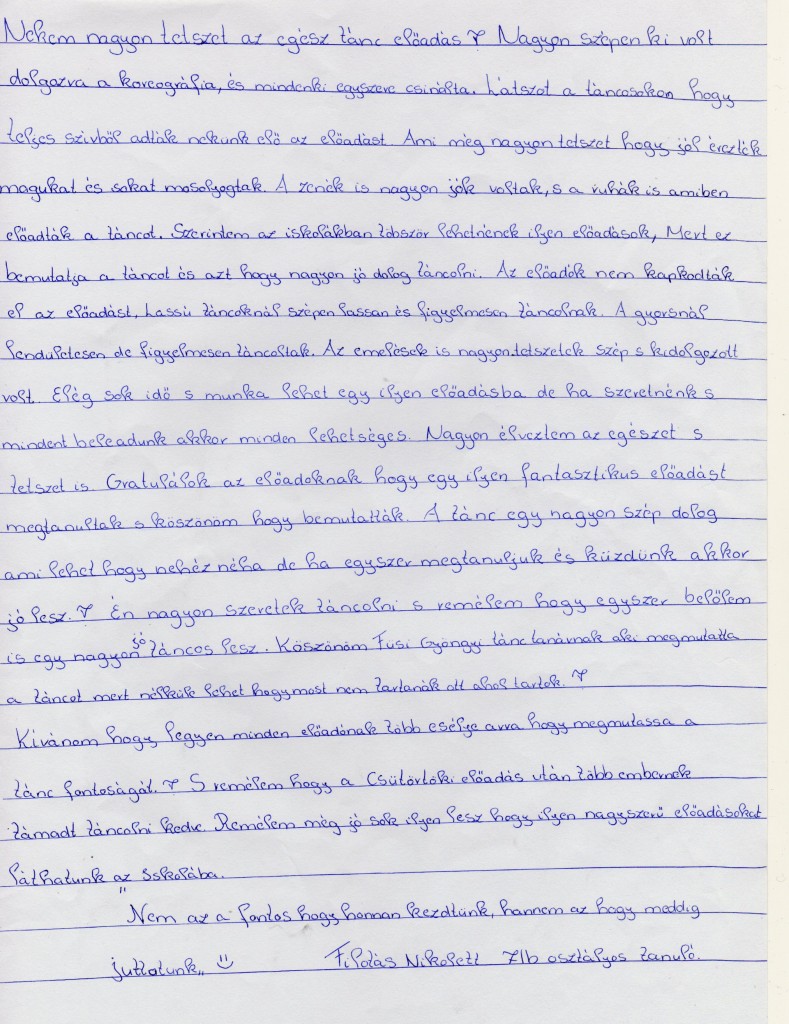 Nekem nagyon tetszet az egész tánc előadás ♥ Nagyon szépen ki volt
dolgozva a koreográfia, és mindenki egyszere csinálta. Látszot a táncosokon hogy
teljes szivből adták nekunk elő az előadást. Ami még nagyon tetszet hogy jól érezték
magukat és sokat mosolyogtak. A zenék is nagyon jók voltak, s a ruhák is amiben
előadták a táncot. Szerintem az iskolákban töbször lehetnének ilyen előadások, Mert ez
bemutatja a táncot és azt hogy nagyon jó dolog táncolni. Az előadók nem kapkodták
el az előadást, Lassú táncoknál szépen lassan és figyelmesen táncolnak. A gyorsnál
lendületesen de figyelmesen táncoltak. Az emelések is nagyon tetszetek szép s kidolgozott
volt. Elég sok idő s munka lehet egy ilyen előadásba de ha szeretnénk s
mindent beleadunk akkor minden lehetséges. Nagyon élveztem az egészet s
tetszet is. Gratulálok az előadoknak hogy egy ilyen fantasztikus előadást
megtanultak s köszönöm hogy bemutatták. A tánc egy nagyon szép dolog
ami lehet hogy nehéz néha de ha egyszer megtanuljuk és küzdünk akkor
jó lesz. ♥ Én nagyon szeretek táncolni s remélem hogy egyszer belőlem
is egy nagyon jó táncos lesz. Köszönöm Füsi Gyöngyi tánctanárnak aki megmutatta
a táncot mert nélkük lehet hogymost nem tartanák ott ahol tartok. ♥
Kívánom hogy legyen minden előadónak több esélye arra hogy megmutassa a
tánc fontoságát. ♥ S remélem hogy a Csütörtöki előadás után több embernek
támadt táncolni kedve. Remélem még jó sok ilyen lesz hogy ilyen nagyszerű előadásokat
láthatunk az iskolába.
"Nem az a fontos hogy honnan kezdtünk, hannem az hogy meddig
juttotunk„ ☺ Filotás Nikolett 7/b osztályos tanuló.